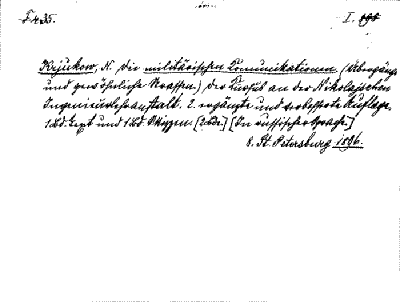 I.
Krjukow, N. Die militärischen Komunikationen (Übergänge
und gewöhnliche Strassen.) Der Kursus an der Nikolajschen
Ingenieurlehranstalt. 2. ergänzte und verbesserte Auflage.
1 Bd. Text und 1 Bd. Skizzen. [2 Bde.] [In russischer Sprache.]
8. St. Petersburg 1896.